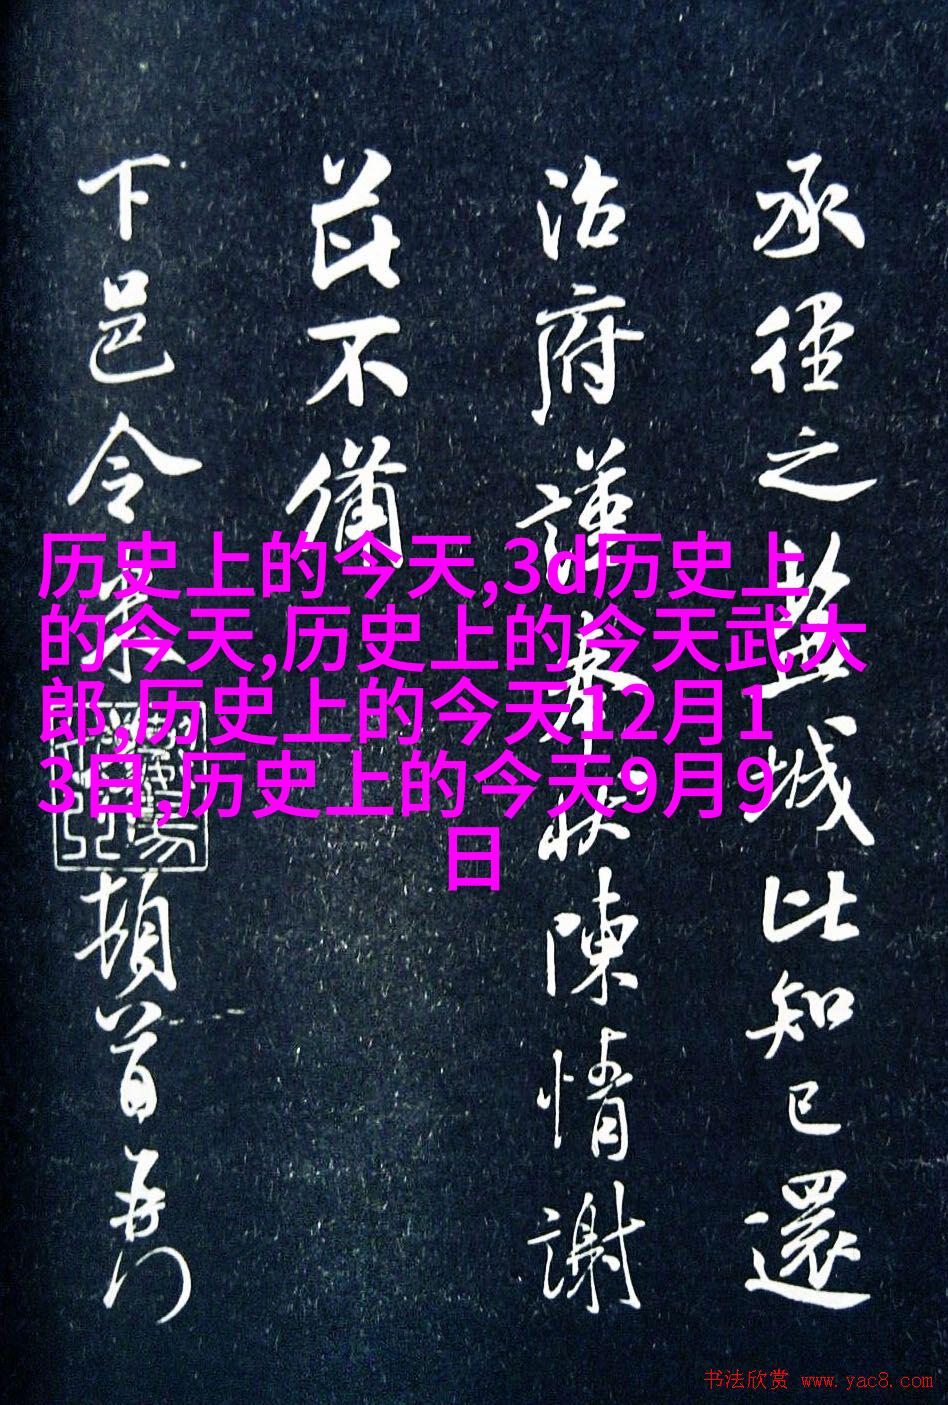 承徑之盐城比知已還
治府謹奉狀陳情謝
茲不備
下邑令
頓首再
历史上的今天,3d历史上
的今天,历史上的今天武大
郎,历史上的今天12月1
3日,历史上的今天9月9
日
书法欣赏 www.yac8.com